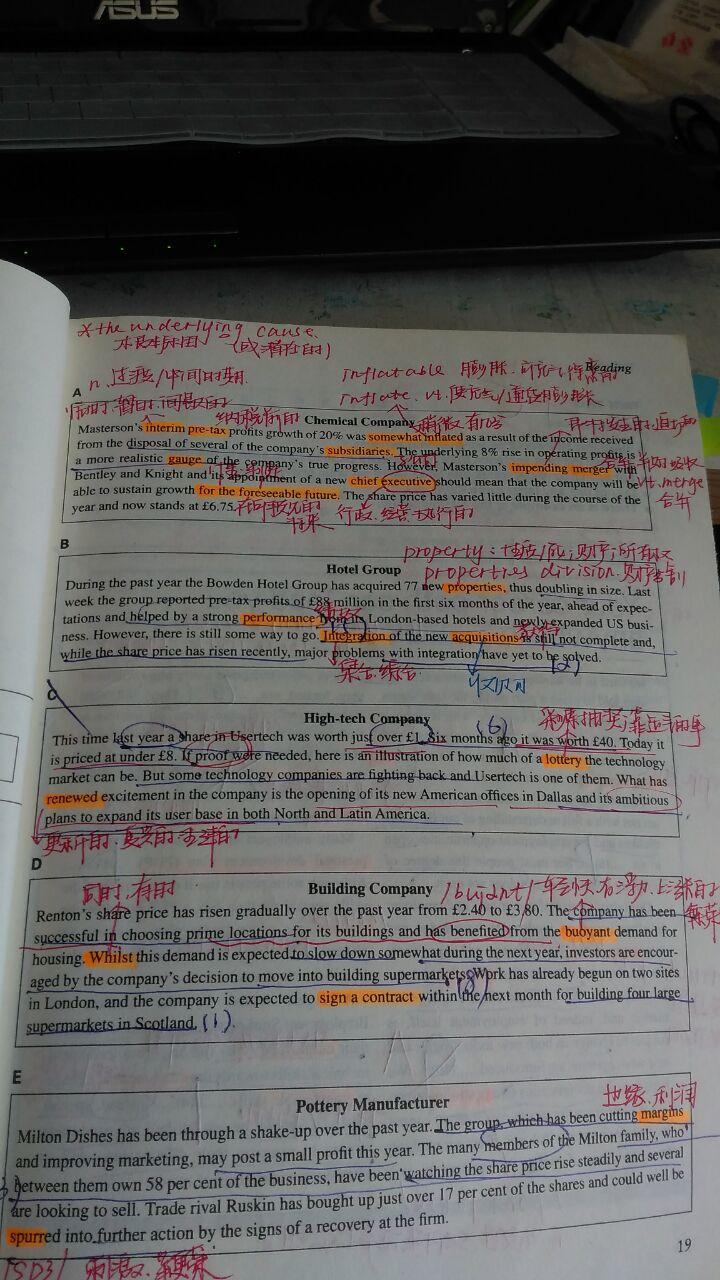 ASUS
*the underlying cause.
(或潜在的)
Inflatable 膨胀
Reading
n. 过渡/中间时期
Inflate vt. 使充气/通货膨胀
A
Chemical Company
Masterson's interim pre-tax profits growth of 20% was somewhat inflated as a result of the income received
from the disposal of several of the company's subsidiaries. The underlying 8% rise in operating profits is
a more realistic gauge of the company's true progress. However, Masterson's impending merger with
Bentley and Knight and its appointment of a new chief executive should mean that the company will be
able to sustain growth for the foreseeable future. The share price has varied little during the course of the
year and now stands at £6.75.
vt. merge
合并
行政、经营、执行的
B
property: 地产/
properties division.
Hotel Group
During the past year the Bowden Hotel Group has acquired 77 new properties, thus doubling in size. Last
week the group reported pre-tax profits of £88 million in the first six months of the year, ahead of expec-
tations and helped by a strong performance from its London-based hotels and newly expanded US busi-
ness. However, there is still some way to go. Integration of the new acquisitions is still not complete and,
while the share price has risen recently, major problems with integration have yet to be solved.
(2)
集合.综合
收购
C
High-tech Company
(6)
This time last year a share in Usertech was worth just over £1. Six months ago it was worth £40. Today it
is priced at under £8. If proof were needed, here is an illustration of how much of a lottery the technology
market can be. But some technology companies are fighting back and Usertech is one of them. What has
renewed excitement in the company is the opening of its new American offices in Dallas and its ambitious
plans to expand its user base in both North and Latin America.
更新的.复兴的
D
同时.有时
Building Company
Renton's share price has risen gradually over the past year from £2.40 to £3.80. The company has been
successful in choosing prime locations for its buildings and has benefited from the buoyant demand for
housing. Whilst this demand is expected to slow down somewhat during the next year, investors are encour-
aged by the company's decision to move into building supermarkets. Work has already begun on two sites
(8)
in London, and the company is expected to sign a contract within the next month for building four large
supermarkets in Scotland. (1).
E
Pottery Manufacturer
边缘.利润
Milton Dishes has been through a shake-up over the past year. The group, which has been cutting margins
and improving marketing, may post a small profit this year. The many members of the Milton family, who
between them own 58 per cent of the business, have been watching the share price rise steadily and several
are looking to sell. Trade rival Ruskin has bought up just over 17 per cent of the shares and could well be
spurred into further action by the signs of a recovery at the firm.
19